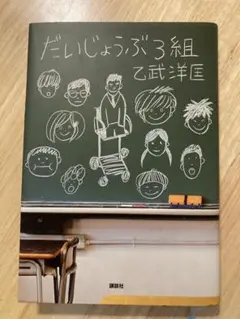 だいじょうぶ3組
乙武洋匡
講談社